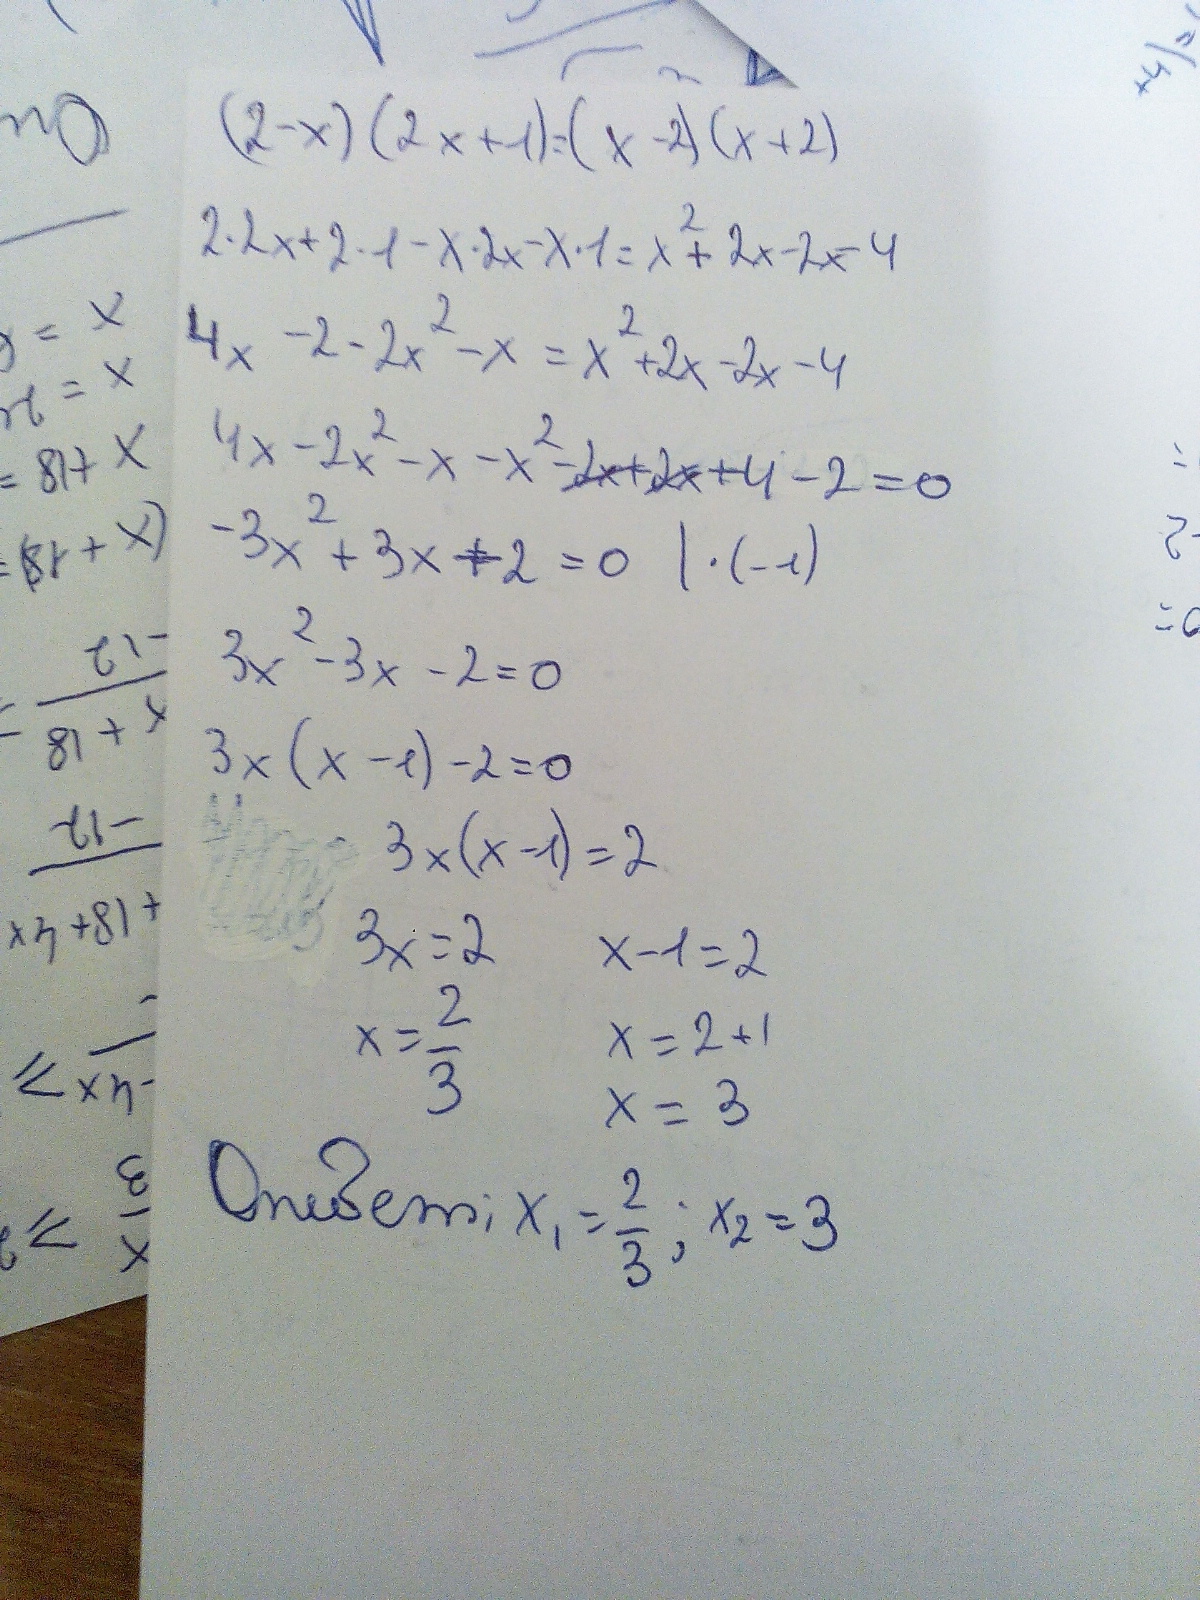 (2-x)(2x+1)=(x-2)(x+2)
2·2x+2·1-x·2x-x·1=x²+2x-2x-4
4x -2-2x²-x = x²+2x-2x-4
4x-2x²-x-x²-2x+2x+4-2=0
-3x²+3x+2=0 |·(-1)
3x²-3x-2=0
3x(x-1)-2=0
3x(x-1)=2
3x=2 x-1=2
x=2/3 x=2+1
x=3
Ответ: x₁=2/3; x₂=3
x
= x
= 18+x
=(18+x)
-12
x+18
-12
+18+4x
-4x ≥
x/3 ≥
+4